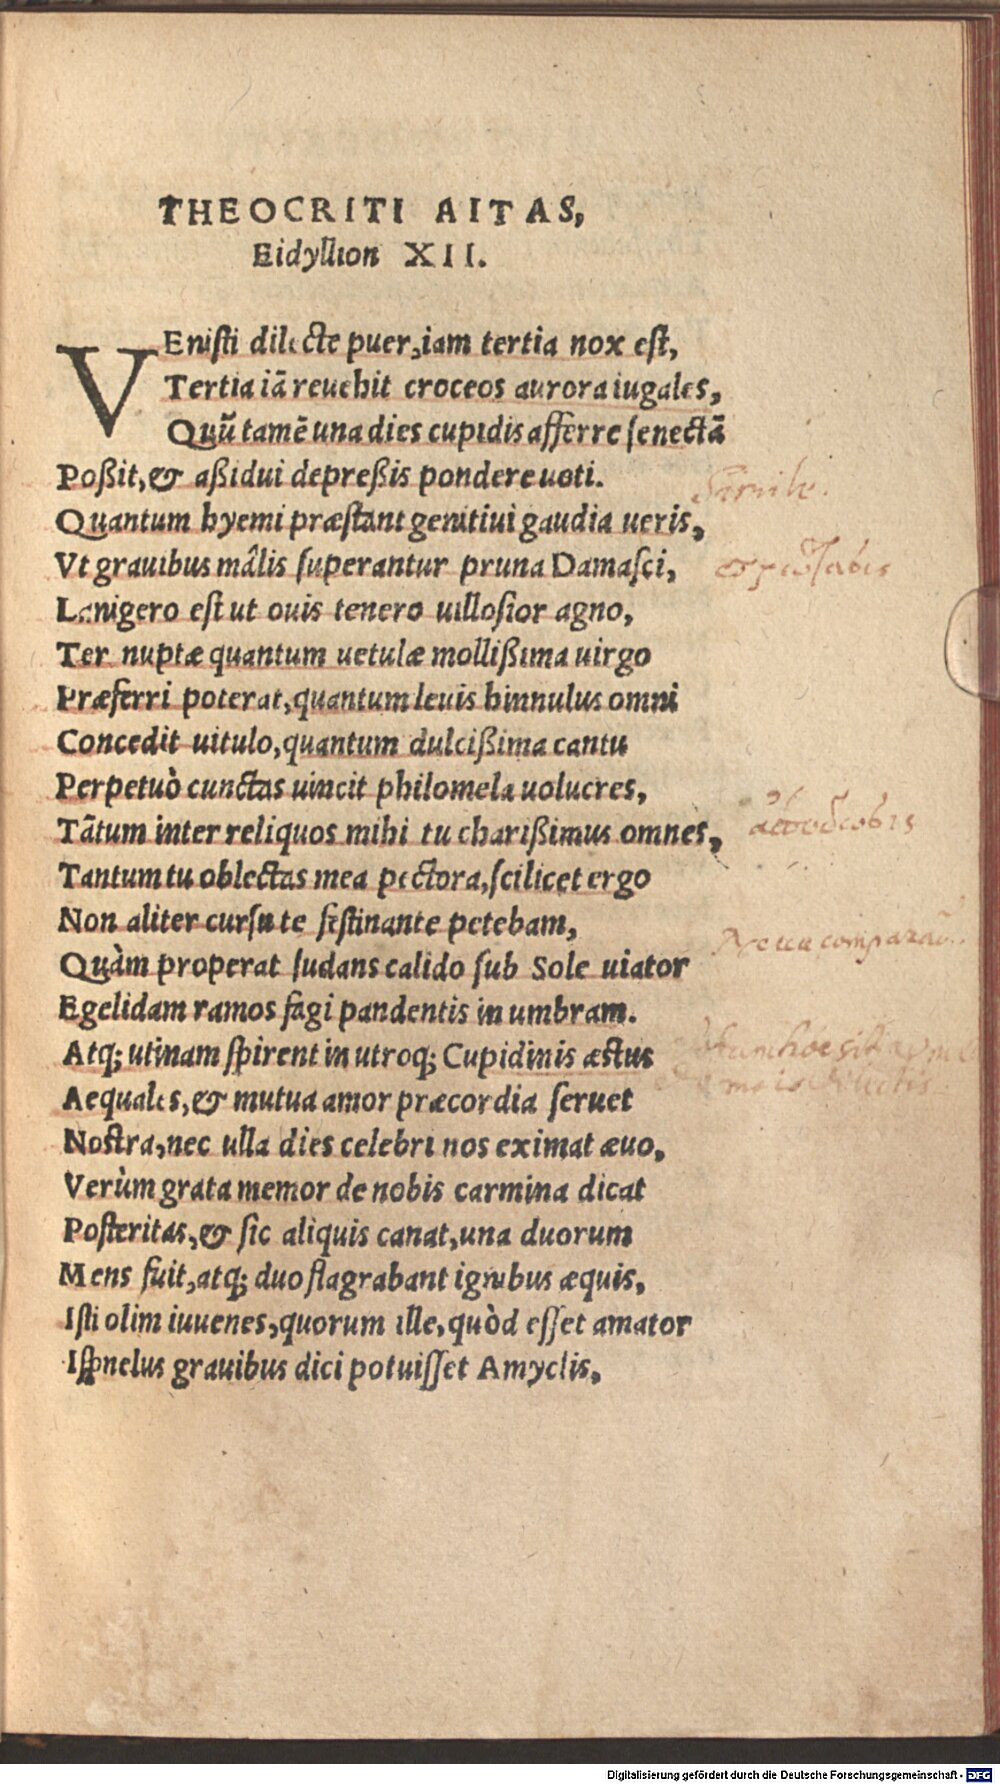 THEOCRITI AITAS,
Eidyllion XII.
VEnisti dilecte puer, iam tertia nox est,
Tertia iā reuehit croceos aurora iugales,
Quū tamē una dies cupidis afferre senectā
Poßit, & aßidui depreßis pondere uoti.
Quantum hyemi præstant genitiui gaudia ueris,
Vt grauibus mâlis superantur pruna Damasci,
Lanigero est ut ouis tenero uillosior agno,
Ter nuptæ quantum uetulæ mollißima uirgo
Præferri poterat, quantum leuis hinnulus omni
Concedit uitulo, quantum dulcißima cantu
Perpetuò cunctas uincit philomela uolucres,
Tātum inter reliquos mihi tu charißimus omnes,
Tantum tu oblectas mea pectora, scilicet ergo
Non aliter cursu te festinante petebam,
Quàm properat sudans calido sub Sole uiator
Egelidam ramos fagi pandentis in umbram.
Atq; utinam spirent in utroq; Cupidinis æstus
Aequales, & mutua amor præcordia seruet
Nostra, nec ulla dies celebri nos eximat æuo,
Verùm grata memor de nobis carmina dicat
Posteritas, & sic aliquis canat, una duorum
Mens fuit, atq; duo flagrabant ignibus æquis,
Isti olim iuuenes, quorum ille, quòd esset amator
Ispnelus grauibus dici potuisset Amyclis,
Digitalisierung gefördert durch die Deutsche Forschungsgemeinschaft - DFG